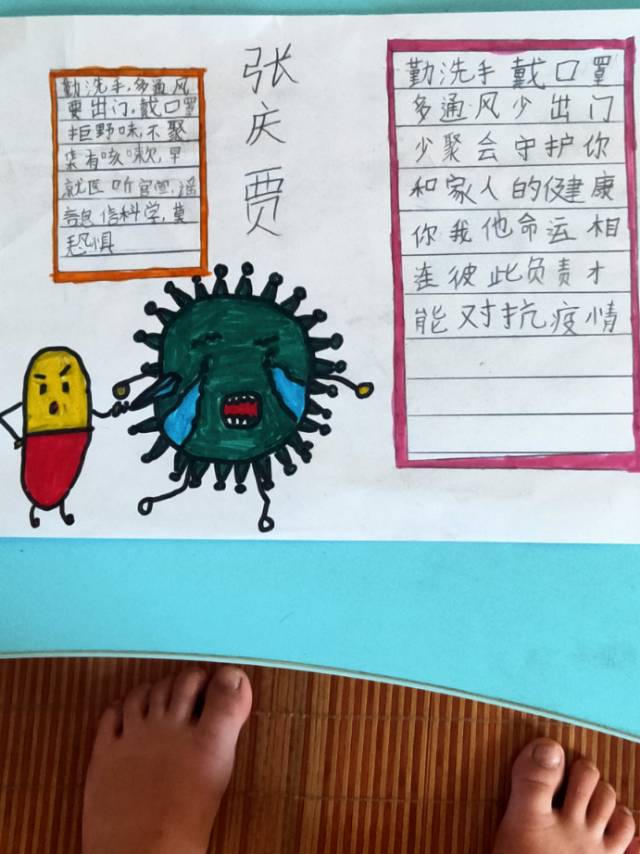 勤洗手，多通风
要出门，戴口罩
拒野味，不聚
集有咳嗽，早
就医听官宣，遥
言息信科学，莫
恐惧
张
庆
贾
勤洗手戴口罩
多通风少出门
少聚会守护你
和家人的健康
你我他命运相
连彼此负责才
能对抗疫情